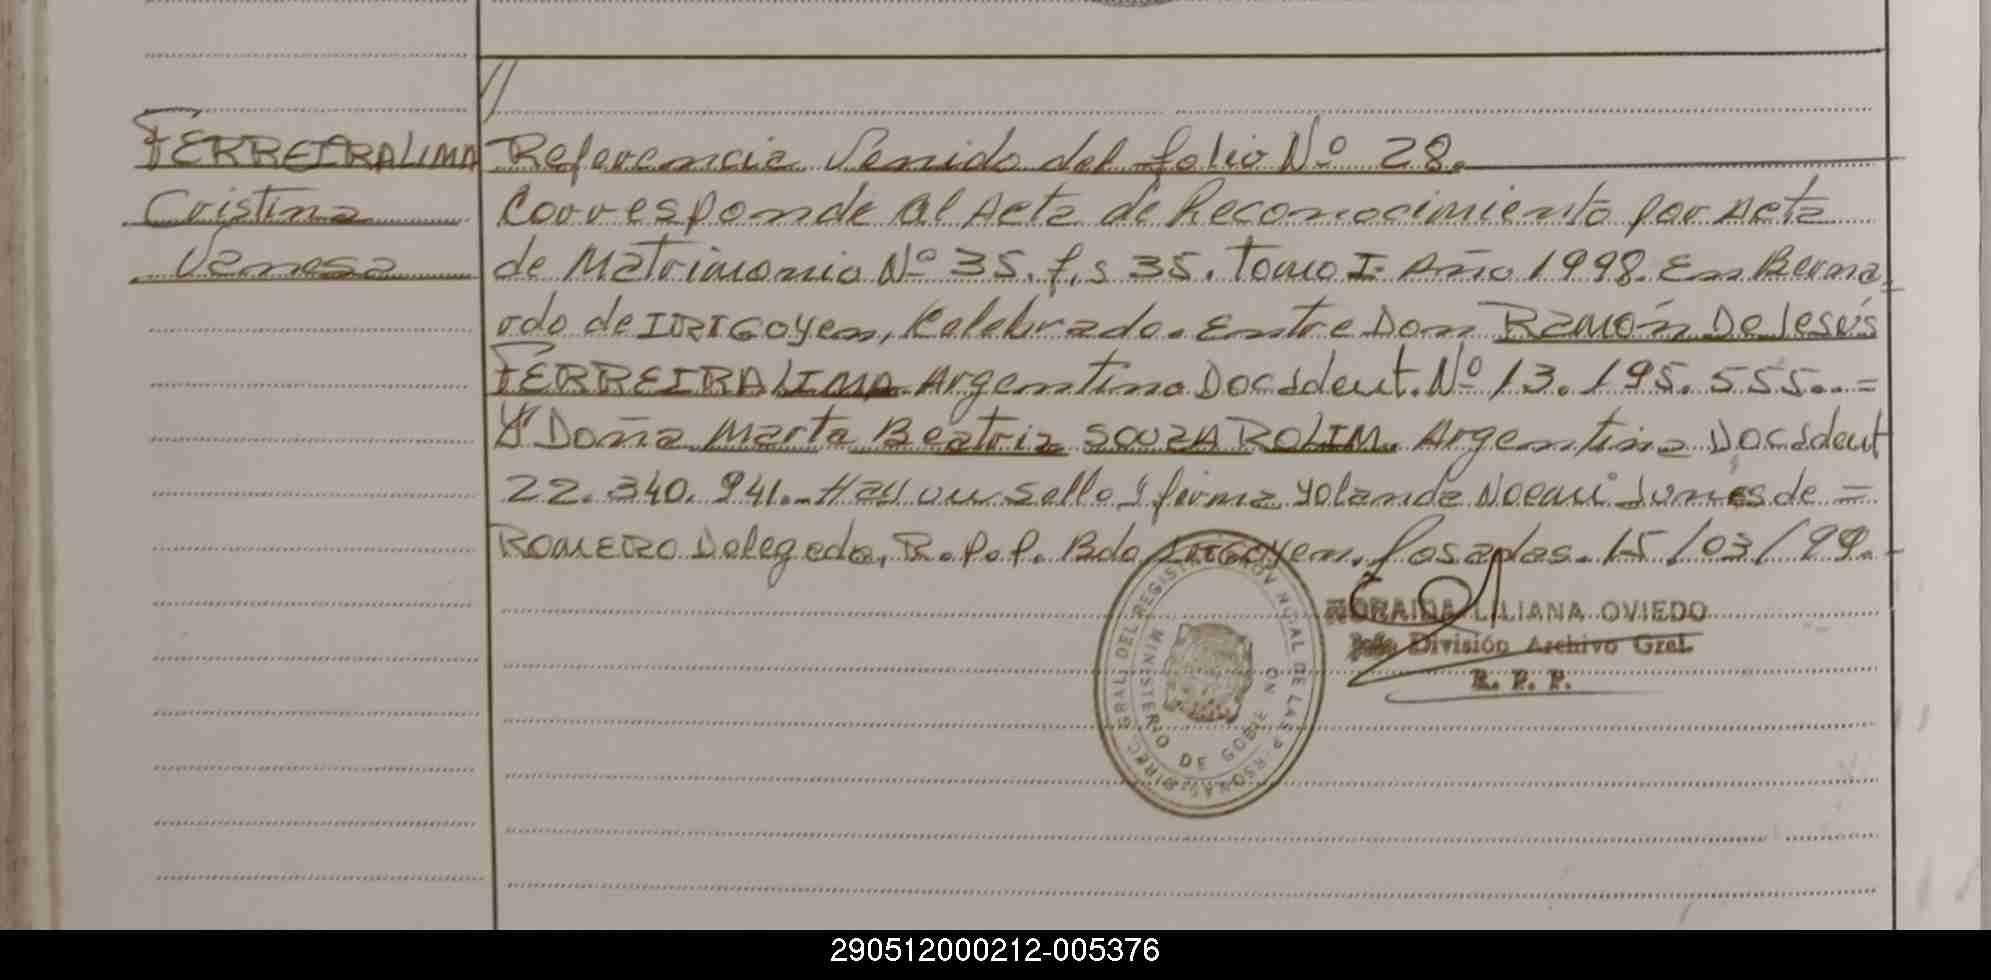 FERREIRA LIMA
Cristina
Vanesa
//
Referencia Venido del folio Nº 28.
Corresponde al Acta de Reconocimiento por Acta
de Matrimonio Nº 35. f.s 35. Tomo I. Año 1998. En Berna
rdo de IRIGOYen, Kelebrado. Entre Don Ramón De Jesús
FERREIRA LIMA Argentino Doc Ident. Nº 13.195.555.. =
Y Doña Marta Beatriz SOUZA ROLIM. Argentina Doc Ident
22.340.941.- Hay un Sello y firma Yolanda Noemi de =
ROMERO Delegada, R.P.P. Bdo Irigoyen. Posadas. 15/03/99.-
ZORAIDA LILIANA OVIEDO
Jefe División Archivo Gral.
R. P. P.
MINISTERIO DE GOBIERNO
290512000212-005376